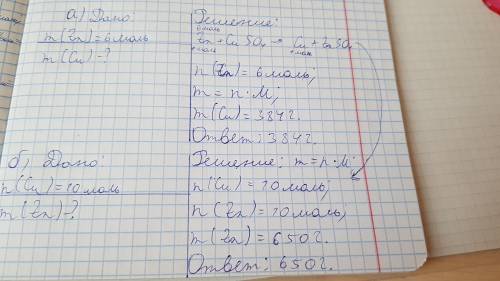 а) Дано:
m(Zn)=6 моль
m(Cu)-?
Решение:
6 моль
Zn+CuSO₄ → Cu+ZnSO₄
1 моль 1 моль
n(Zn)=6 моль,
m=n·M;
m(Cu)=384г.
Ответ: 384г.
б) Дано:
n(Cu)=10 моль
m(Zn)-?
Решение: m=n·M;
n(Cu)=10 моль;
n(Zn)=10 моль,
m(Zn)=650г.
Ответ: 650г.